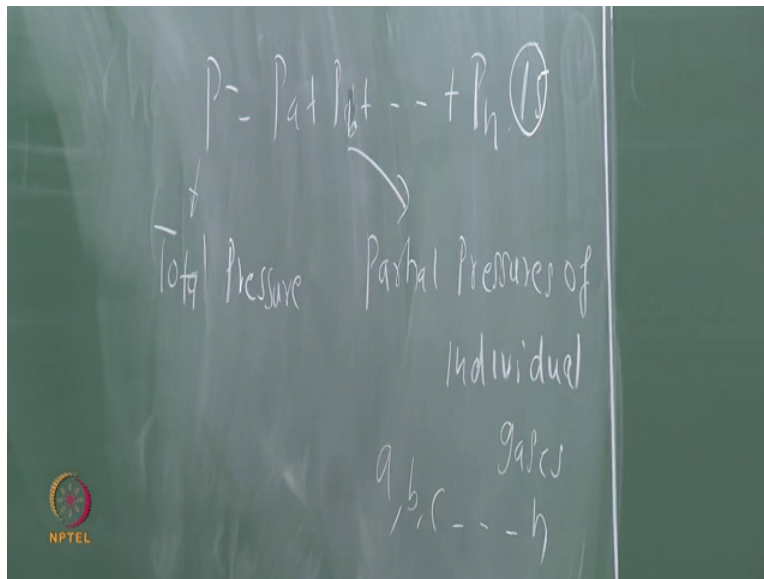 P = Pa + Pb + - - - + Pn (15)
Total Pressure
Partial Pressures of
Individual
gases
a, b, c - - - - n
NPTEL